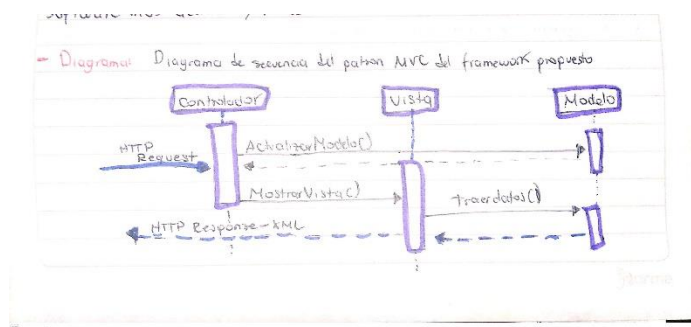 - Diagrama: Diagrama de secuencia del patron MVC del framework propuesto
Controlador
Vista
Modelo
HTTP
Request
ActualizarModelo()
MostrarVista()
Traerdatos()
HTTP Response-XML